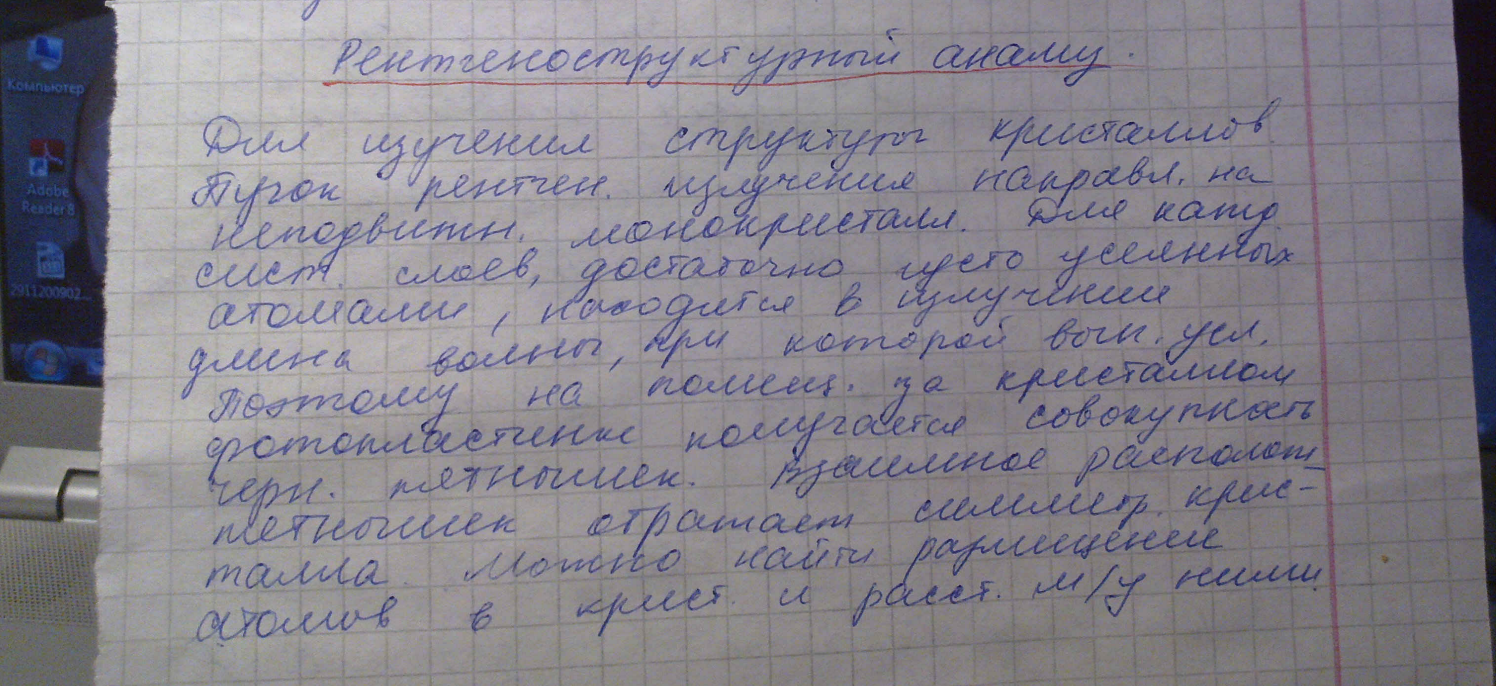 Компьютер
Adobe
Reader 8
2911200902...
Рентгеноструктурный анализ.
Для изучения структуры кристаллов.
Пучок рентген. излучения направл. на
неподвижн. монокристалл. Для кажд.
сист. слоев, достаточно густо усеянных
атомами, находится в излучении
длина волны, при которой вып. усл.
Поэтому на помещ. за кристаллом
фотопластинке получается совокупность
черн. пятнышек. Взаимное располож.
пятнышек отражает симметр. крис-
талла. Можно найти размещение
атомов в крист. и расст. м/у ними.